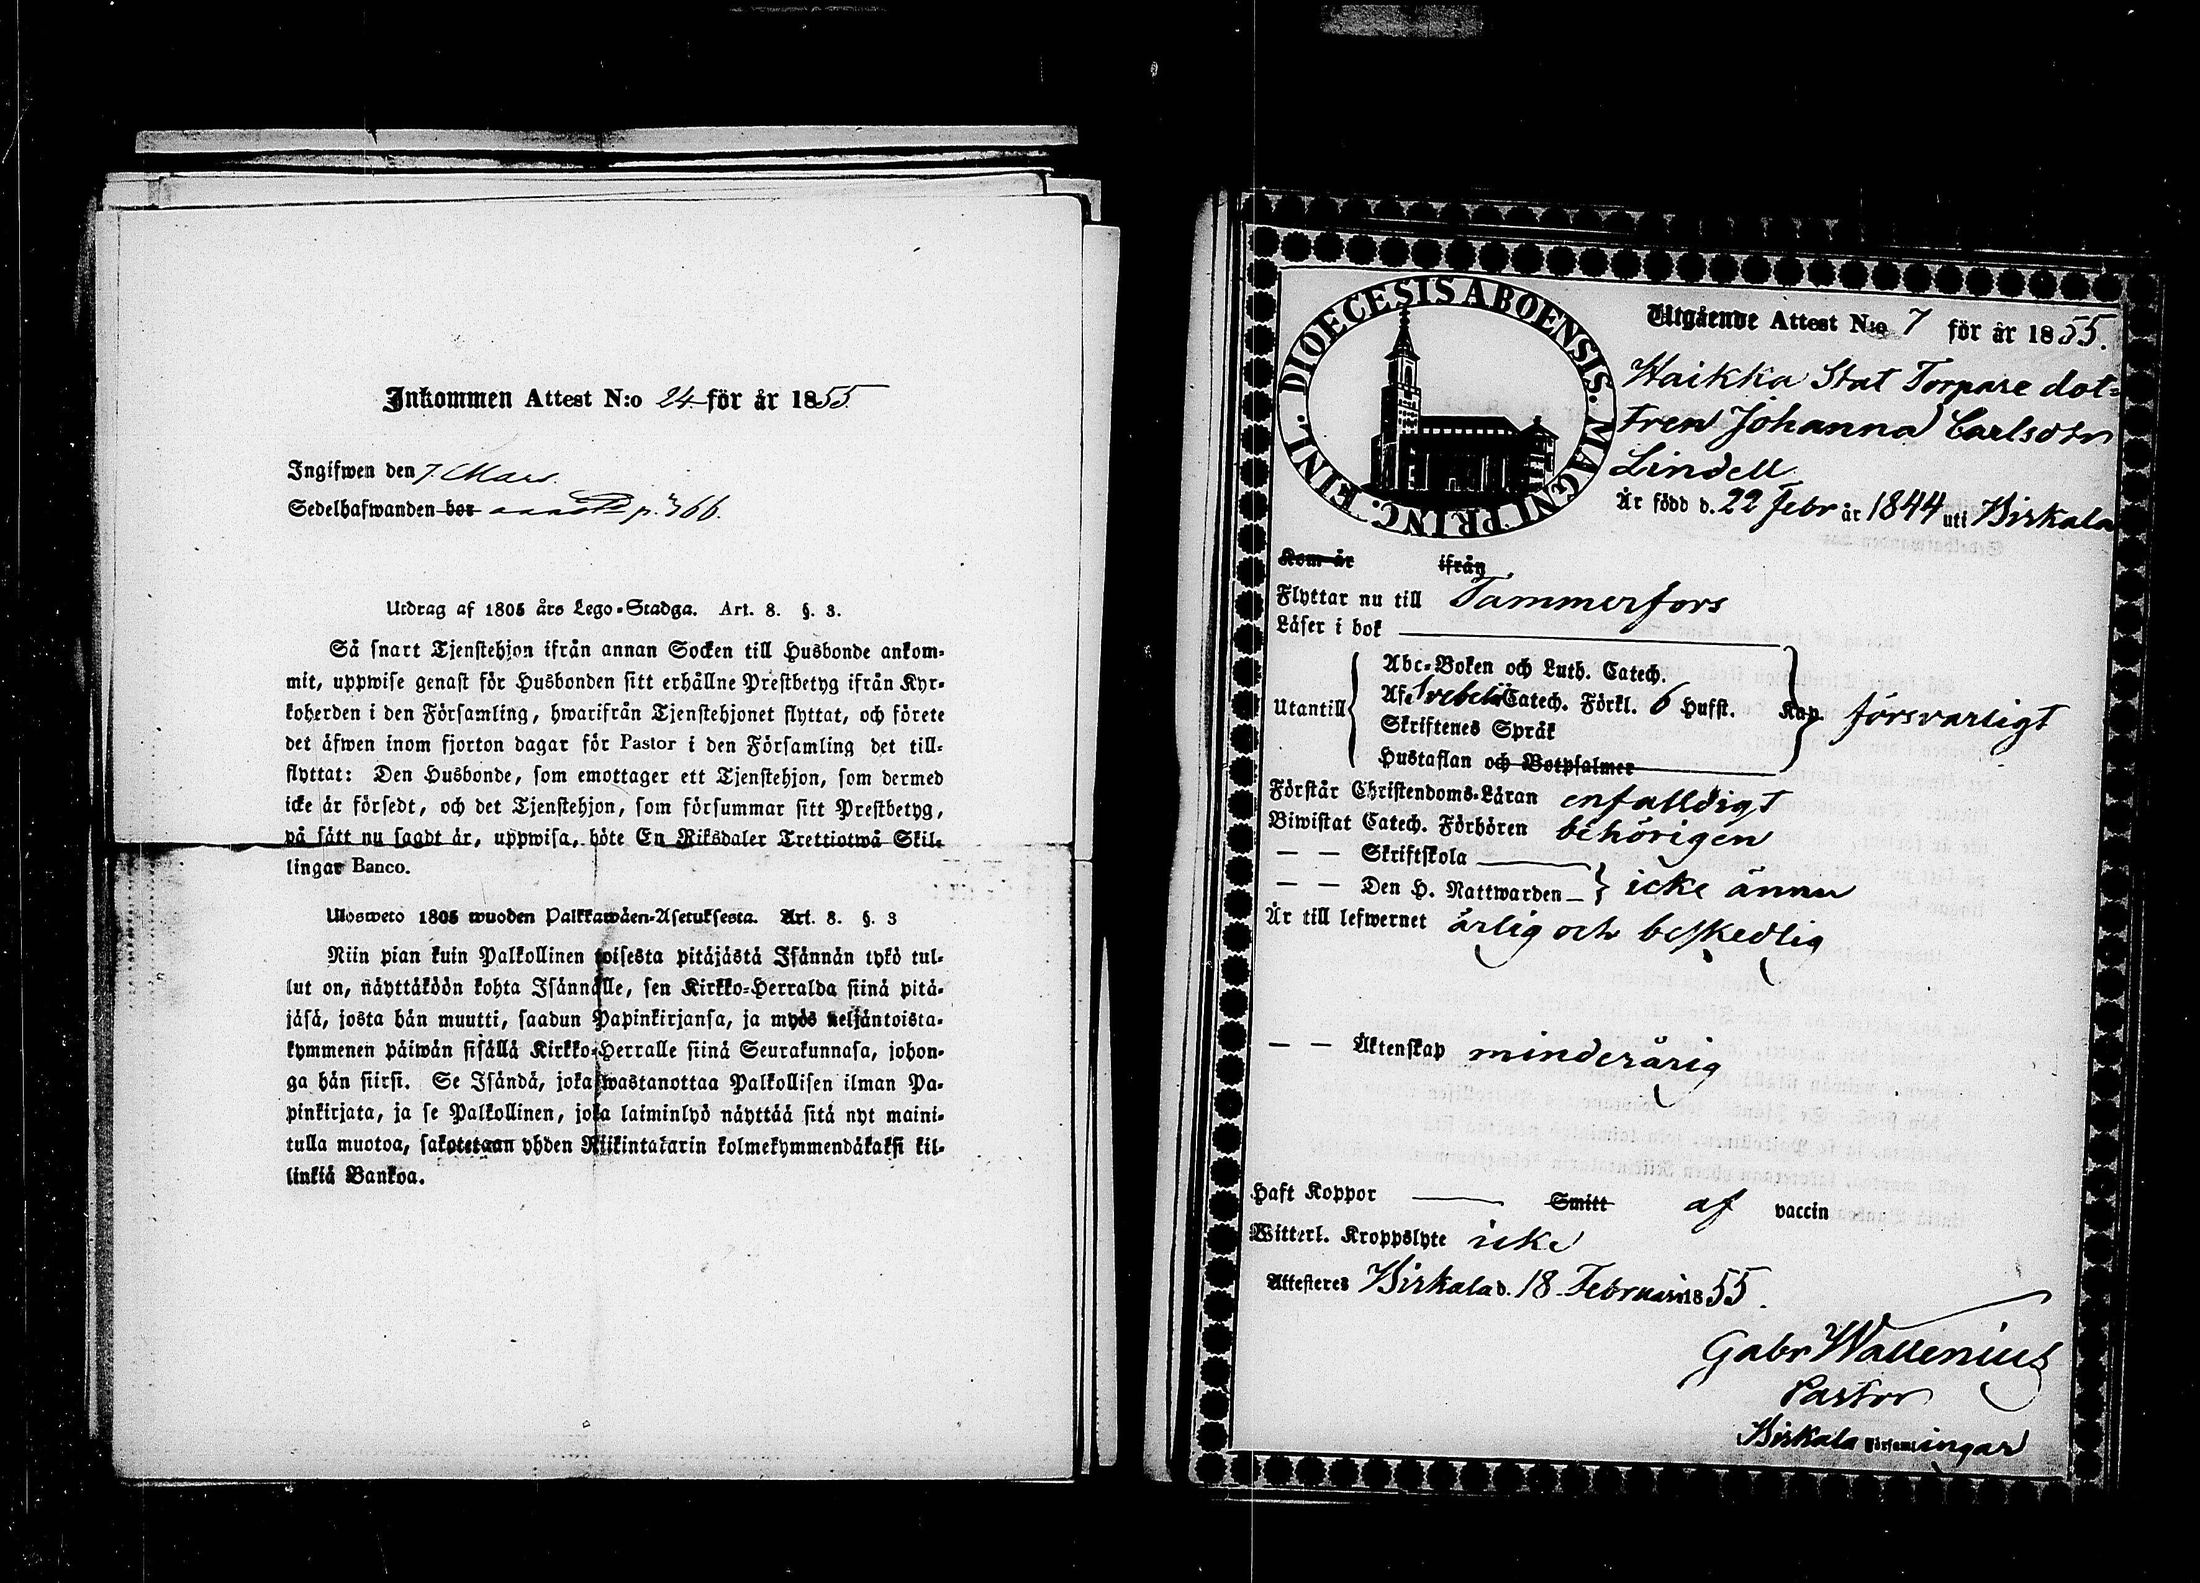 Inkommen Attest N:o 24 för år 1855
Ingifwen den 7. Mars.
Sedelhafwanden bor p. 366.
Utdrag af 1805 års Lego-Stadga. Art. 8. §. 3.
Så snart Tjenstehjon ifrån annan Socken till Husbonde ankom-
mit, uppwise genast för Husbonden sitt erhållne Prestbetyg ifrån Kyr-
koherden i den Församling, hwarifrån Tjenstehjonet flyttat, och förete
det äfwen inom fjorton dagar för Pastor i den Församling det till-
flyttat: Den Husbonde, som emottager ett Tjenstehjon, som dermed
icke är försedt, och det Tjenstehjon, som försummar sitt Prestbetyg,
på sätt nu sagdt är, uppwisa, böte En Riksdaler Trettiotwå Skil-
lingar Banco.
Ulosweto 1805 wuoden Palkkawäen-Asetuksesta. Art. 8. §. 3
Niin pian kuin Palkollinen toisesta pitäjästä Isännän tykö tul-
lut on, näyttäköön kohta Isännälle, sen Kirkko-Herralda siinä pitä-
jäsä, josta hän muutti, saadun Papinkirjansa, ja myös neljäntoista-
kymmenen päiwän sisällä Kirkko-Herralle siinä Seurakunnasa, johon-
ga hän siirsi. Se Isändä, joka wastanottaa Palkollisen ilman Pa-
pinkirjata, ja se Palkollinen, joka laiminlyö näyttää sitä nyt maini-
tulla muotoa, sakotetaan yhden Riikintalarin kolmekymmendäkaksi kil-
linkiä Bankoa.
DIOECESIS ABOENSIS. MAGNI PRINC. FINL.
Utgående Attest N:o 7 för år 1855.
Haikka Stat Torpare dot-
tren Johanna Carlsdotr
Lindell
Är född d. 22 Febr år 1844 uti Birkala
Kom år ifrån
Flyttar nu till Tammerfors
Läser i bok
Utantill
Abc-Boken och Luth. Catech.
Af Svebelii Catech. Förkl. 6 Hufst. Kap. försvarligt
Skriftenes Språk
Hustaflan och Botpsalmer
Förstår Christendoms-Läran enfalldigt
Biwistat Catech. Förhören behörigen
— — Skriftskola
— — Den H. Nattwarden — icke ännu
Är till lefwernet ärlig och beskedlig
— — Äktenskap minderårig
Haft Koppor Smitt af vaccin
Witterl. Kroppslyte icke
Attesteres Birkala d. 18 Februari 1855.
Gabr Wallenius
Pastor
Birkala Församlingar